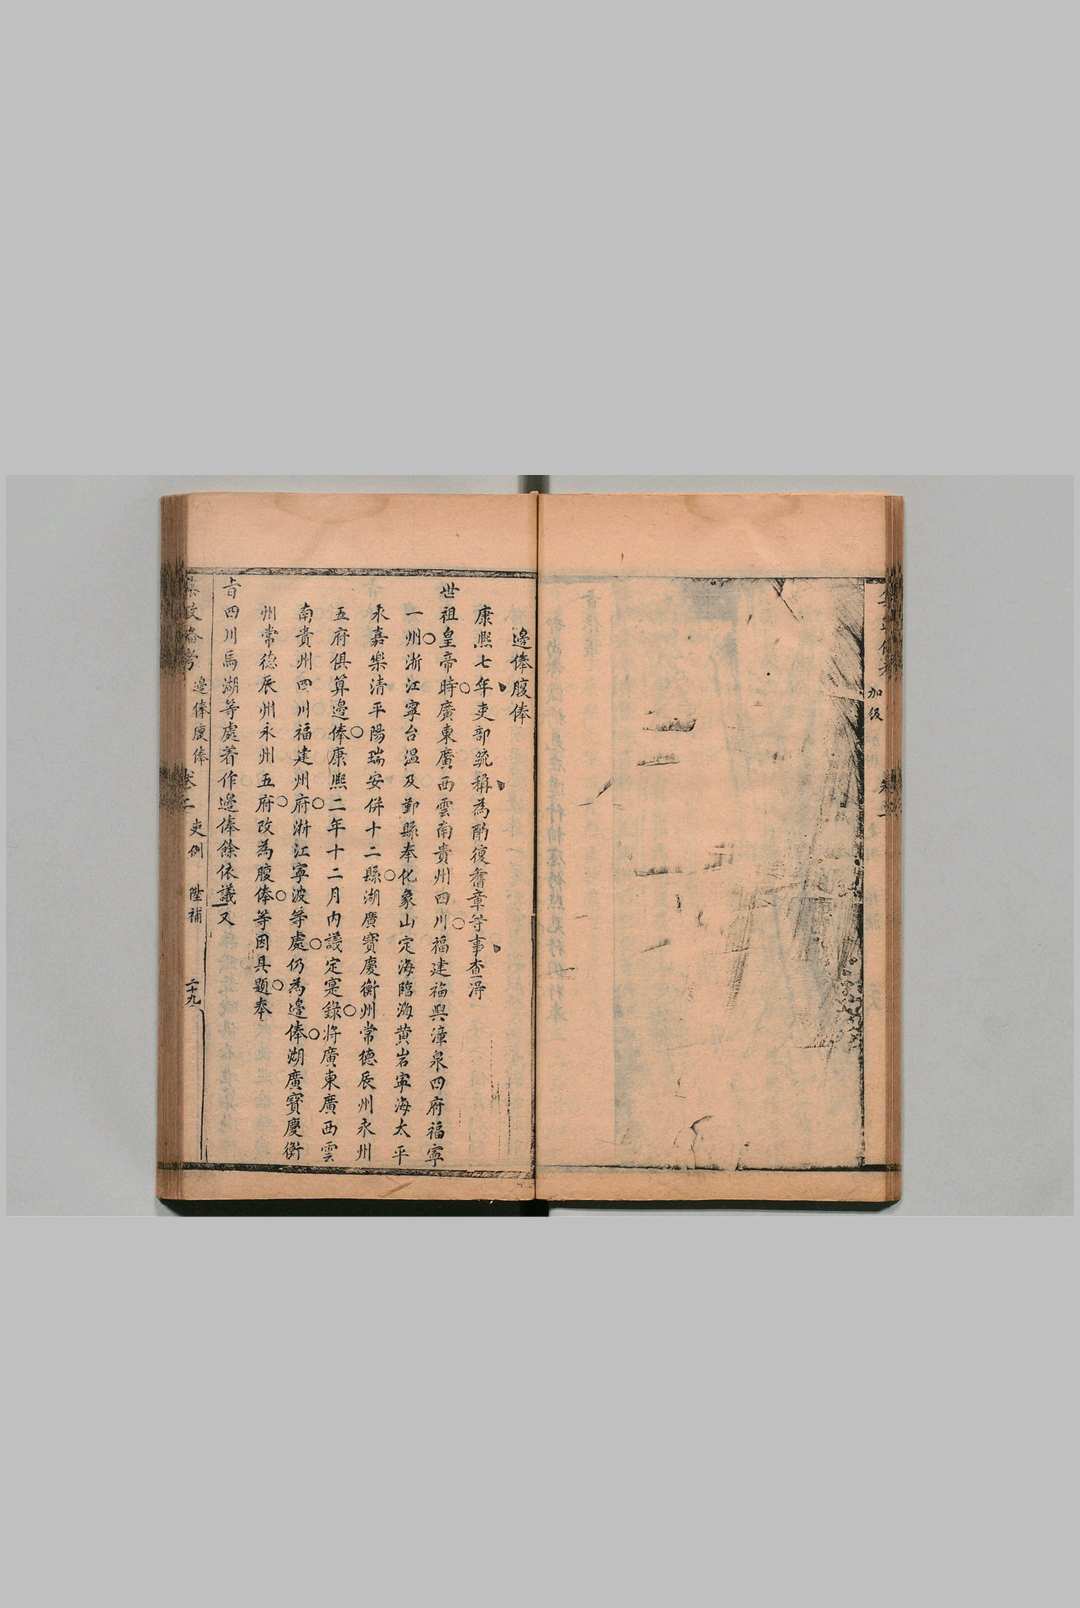 加級
邊俸腹俸
康熙七年吏部疏稱為酌復舊章等事查淂
世祖皇帝時廣東廣西雲南貴州四川福建福興漳泉四府福寧
一州浙江寧台溫及鄞縣奉化象山定海臨海黃岩寧海太平
永嘉樂清平陽瑞安併十二縣湖廣寶慶衡州常德辰州永州
五府俱算邊俸康熙二年十二月內議定寔錄將廣東廣西雲
南貴州四川福建州府浙江寧波等處仍為邊俸湖廣寶慶衡
州常德辰州永州五府改為腹俸等因具題奉
旨四川馬湖等處著作邊俸餘依議又
邊俸腹俸 卷二 吏例 陞補 二十九